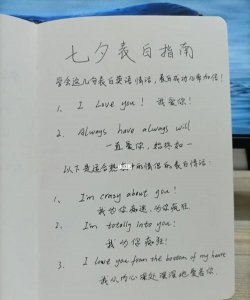 七夕表白指南
学会这几句表白英语情话,表白成功心率加倍!
1. I Love you! 我爱你!
2. Always have always will
一直爱你,始终如一
以下是适合热恋中的情侣的表白情话:
1、 I'm crazy about you!
我为你痴迷,为你疯狂
2. I'm totally into you!
我为你痴狂!
3. I love you from the bottom of my heart
我从内心深处深深地爱着你